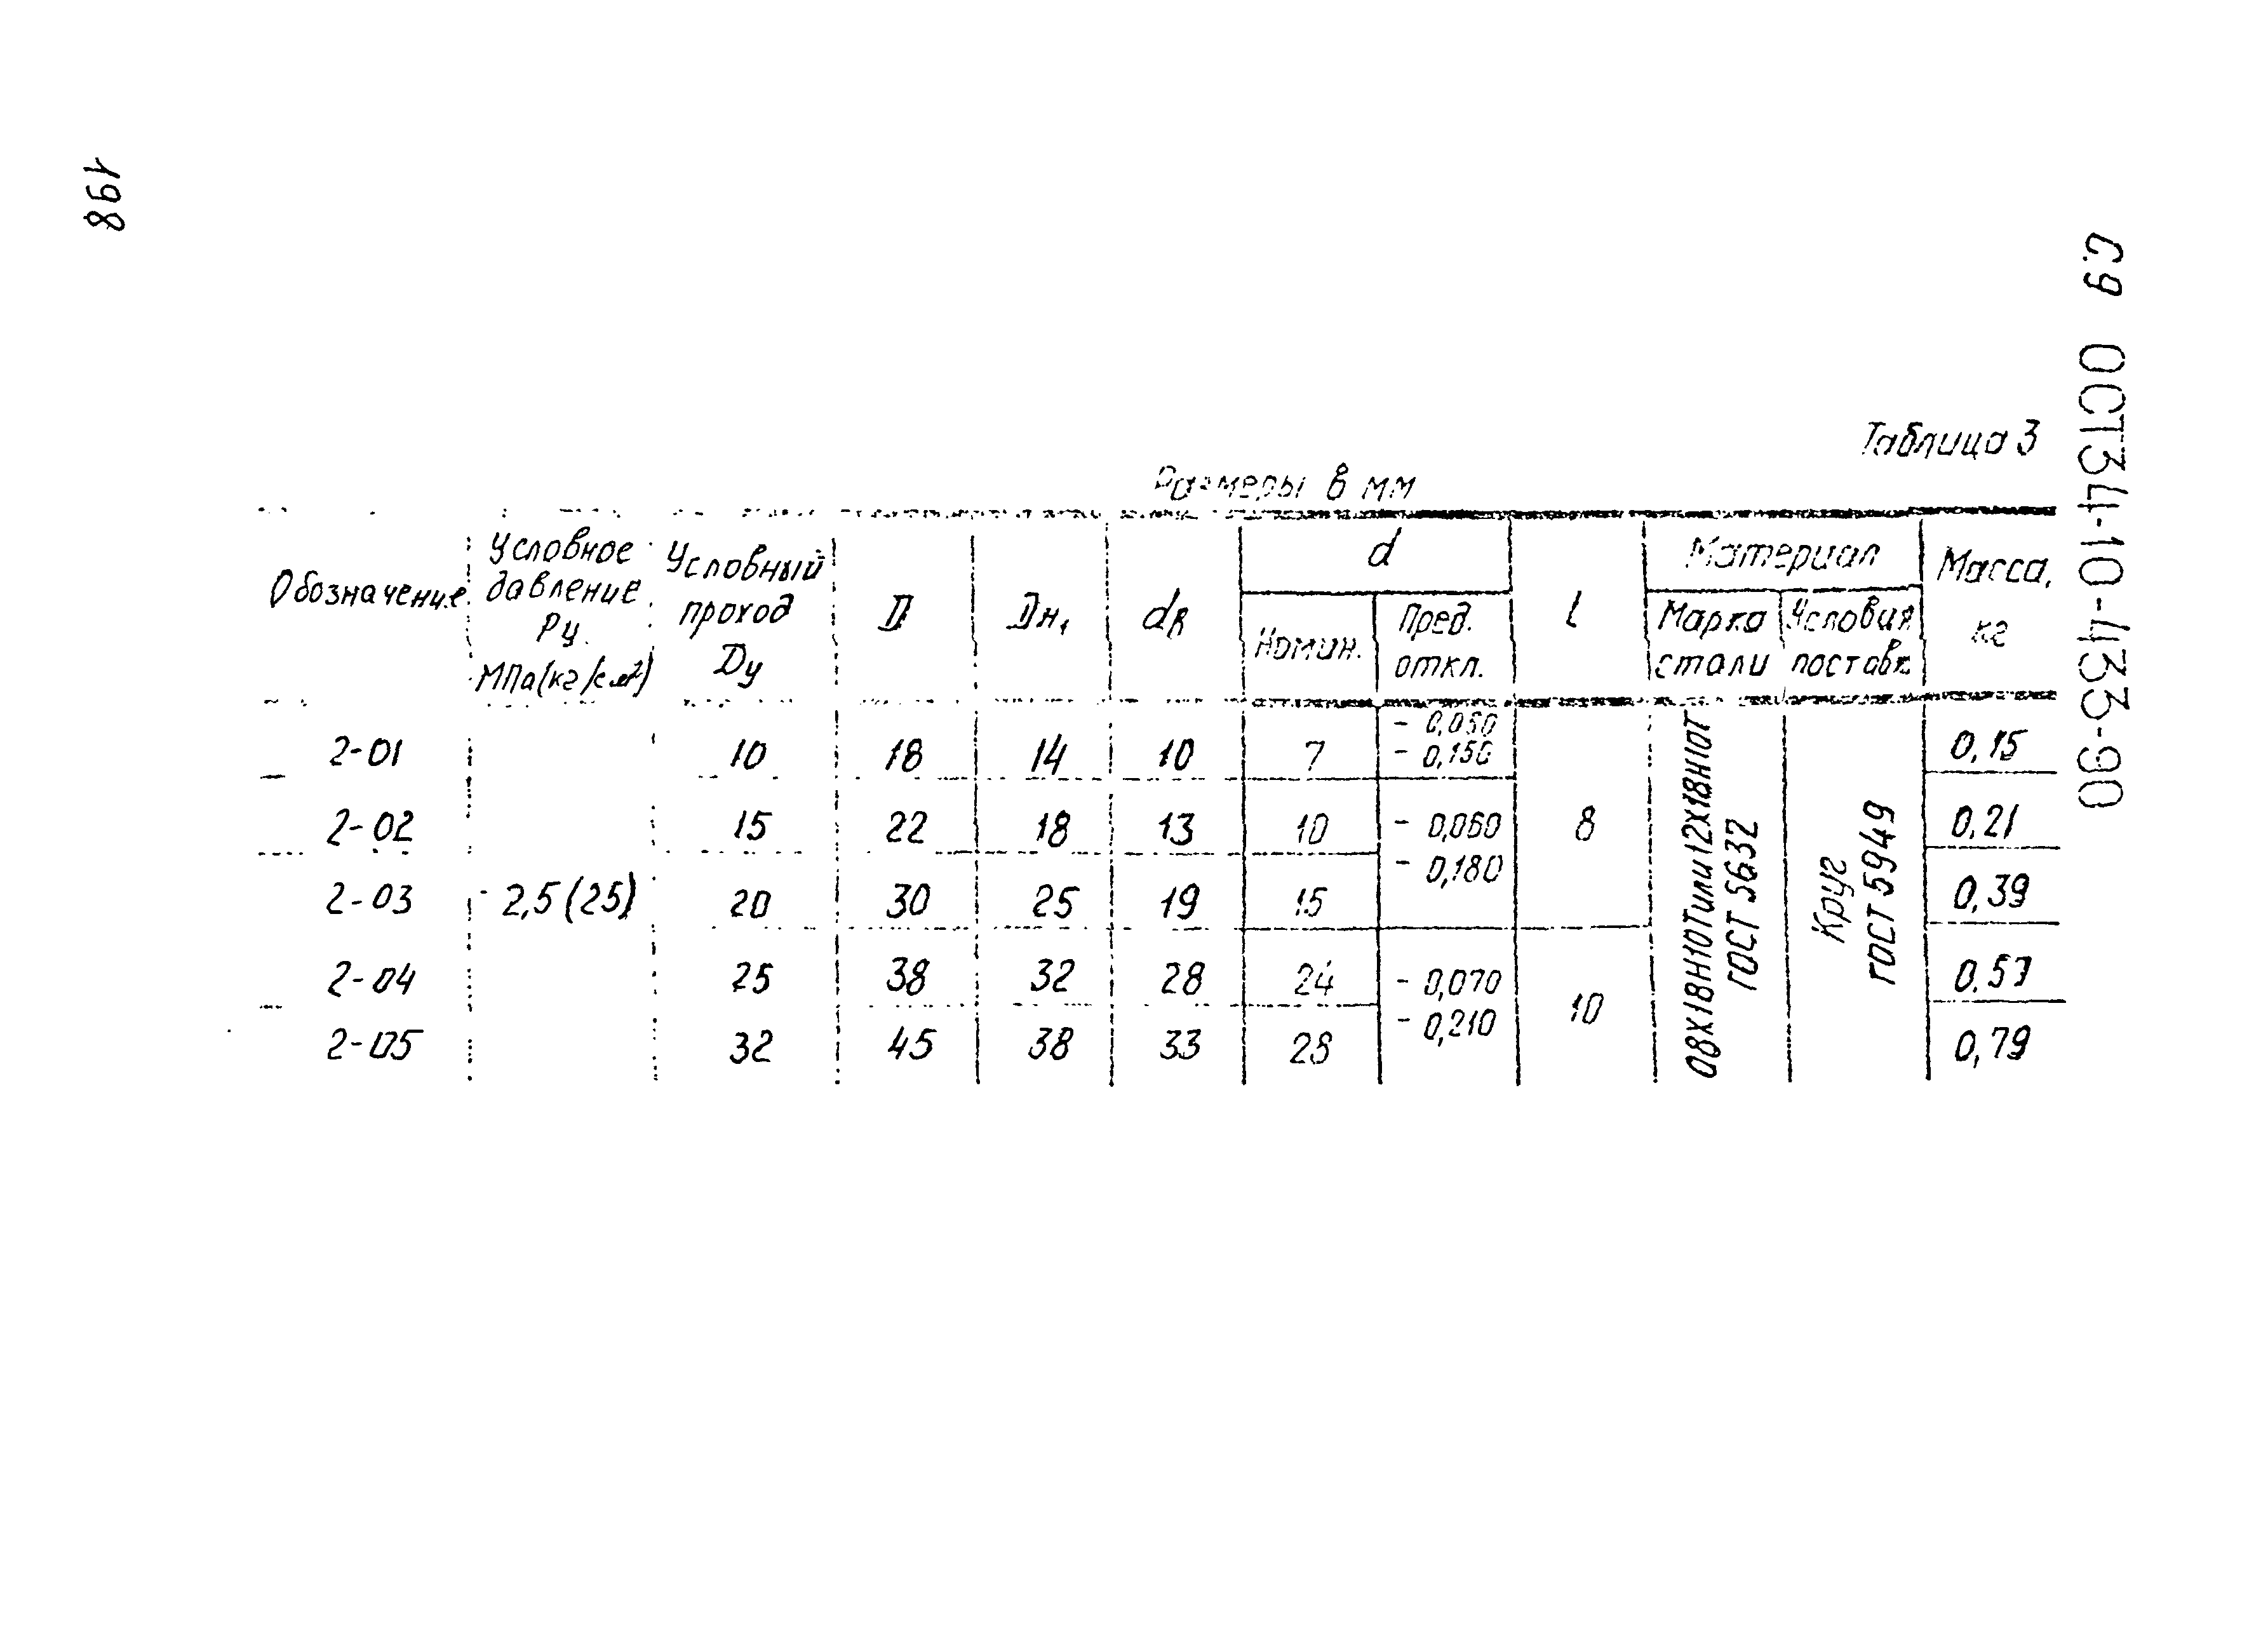 198
С.9 ОСТ34-10-433-90
Таблица 3
Размеры в мм
Обозначение
Условное
давление
Ру
МПа(кг/см²)
Условный
проход
Ду
D
Dн₁
dв
d
Номин.
Пред.
откл.
l
Материал
Марка
стали
Условия
поставк.
Масса,
кг
2-01 10 18 14 10 7 0,15
- 0,150
2-02 15 22 18 13 10 - 0,060 8 0,21
- 0,180
2-03 2,5 (25) 20 30 25 19 15 0,39
2-04 25 38 32 28 24 - 0,070 0,57
- 0,210
2-05 32 45 38 33 28 10 0,79
08Х18Н10Т или 12Х18Н10Т
ГОСТ 5632
Круг
ГОСТ 5949